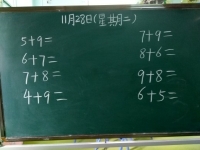 11月28日(星期二)
5+9=
6+7=
7+8=
4+9=
7+9=
8+6=
9+8=
6+5=